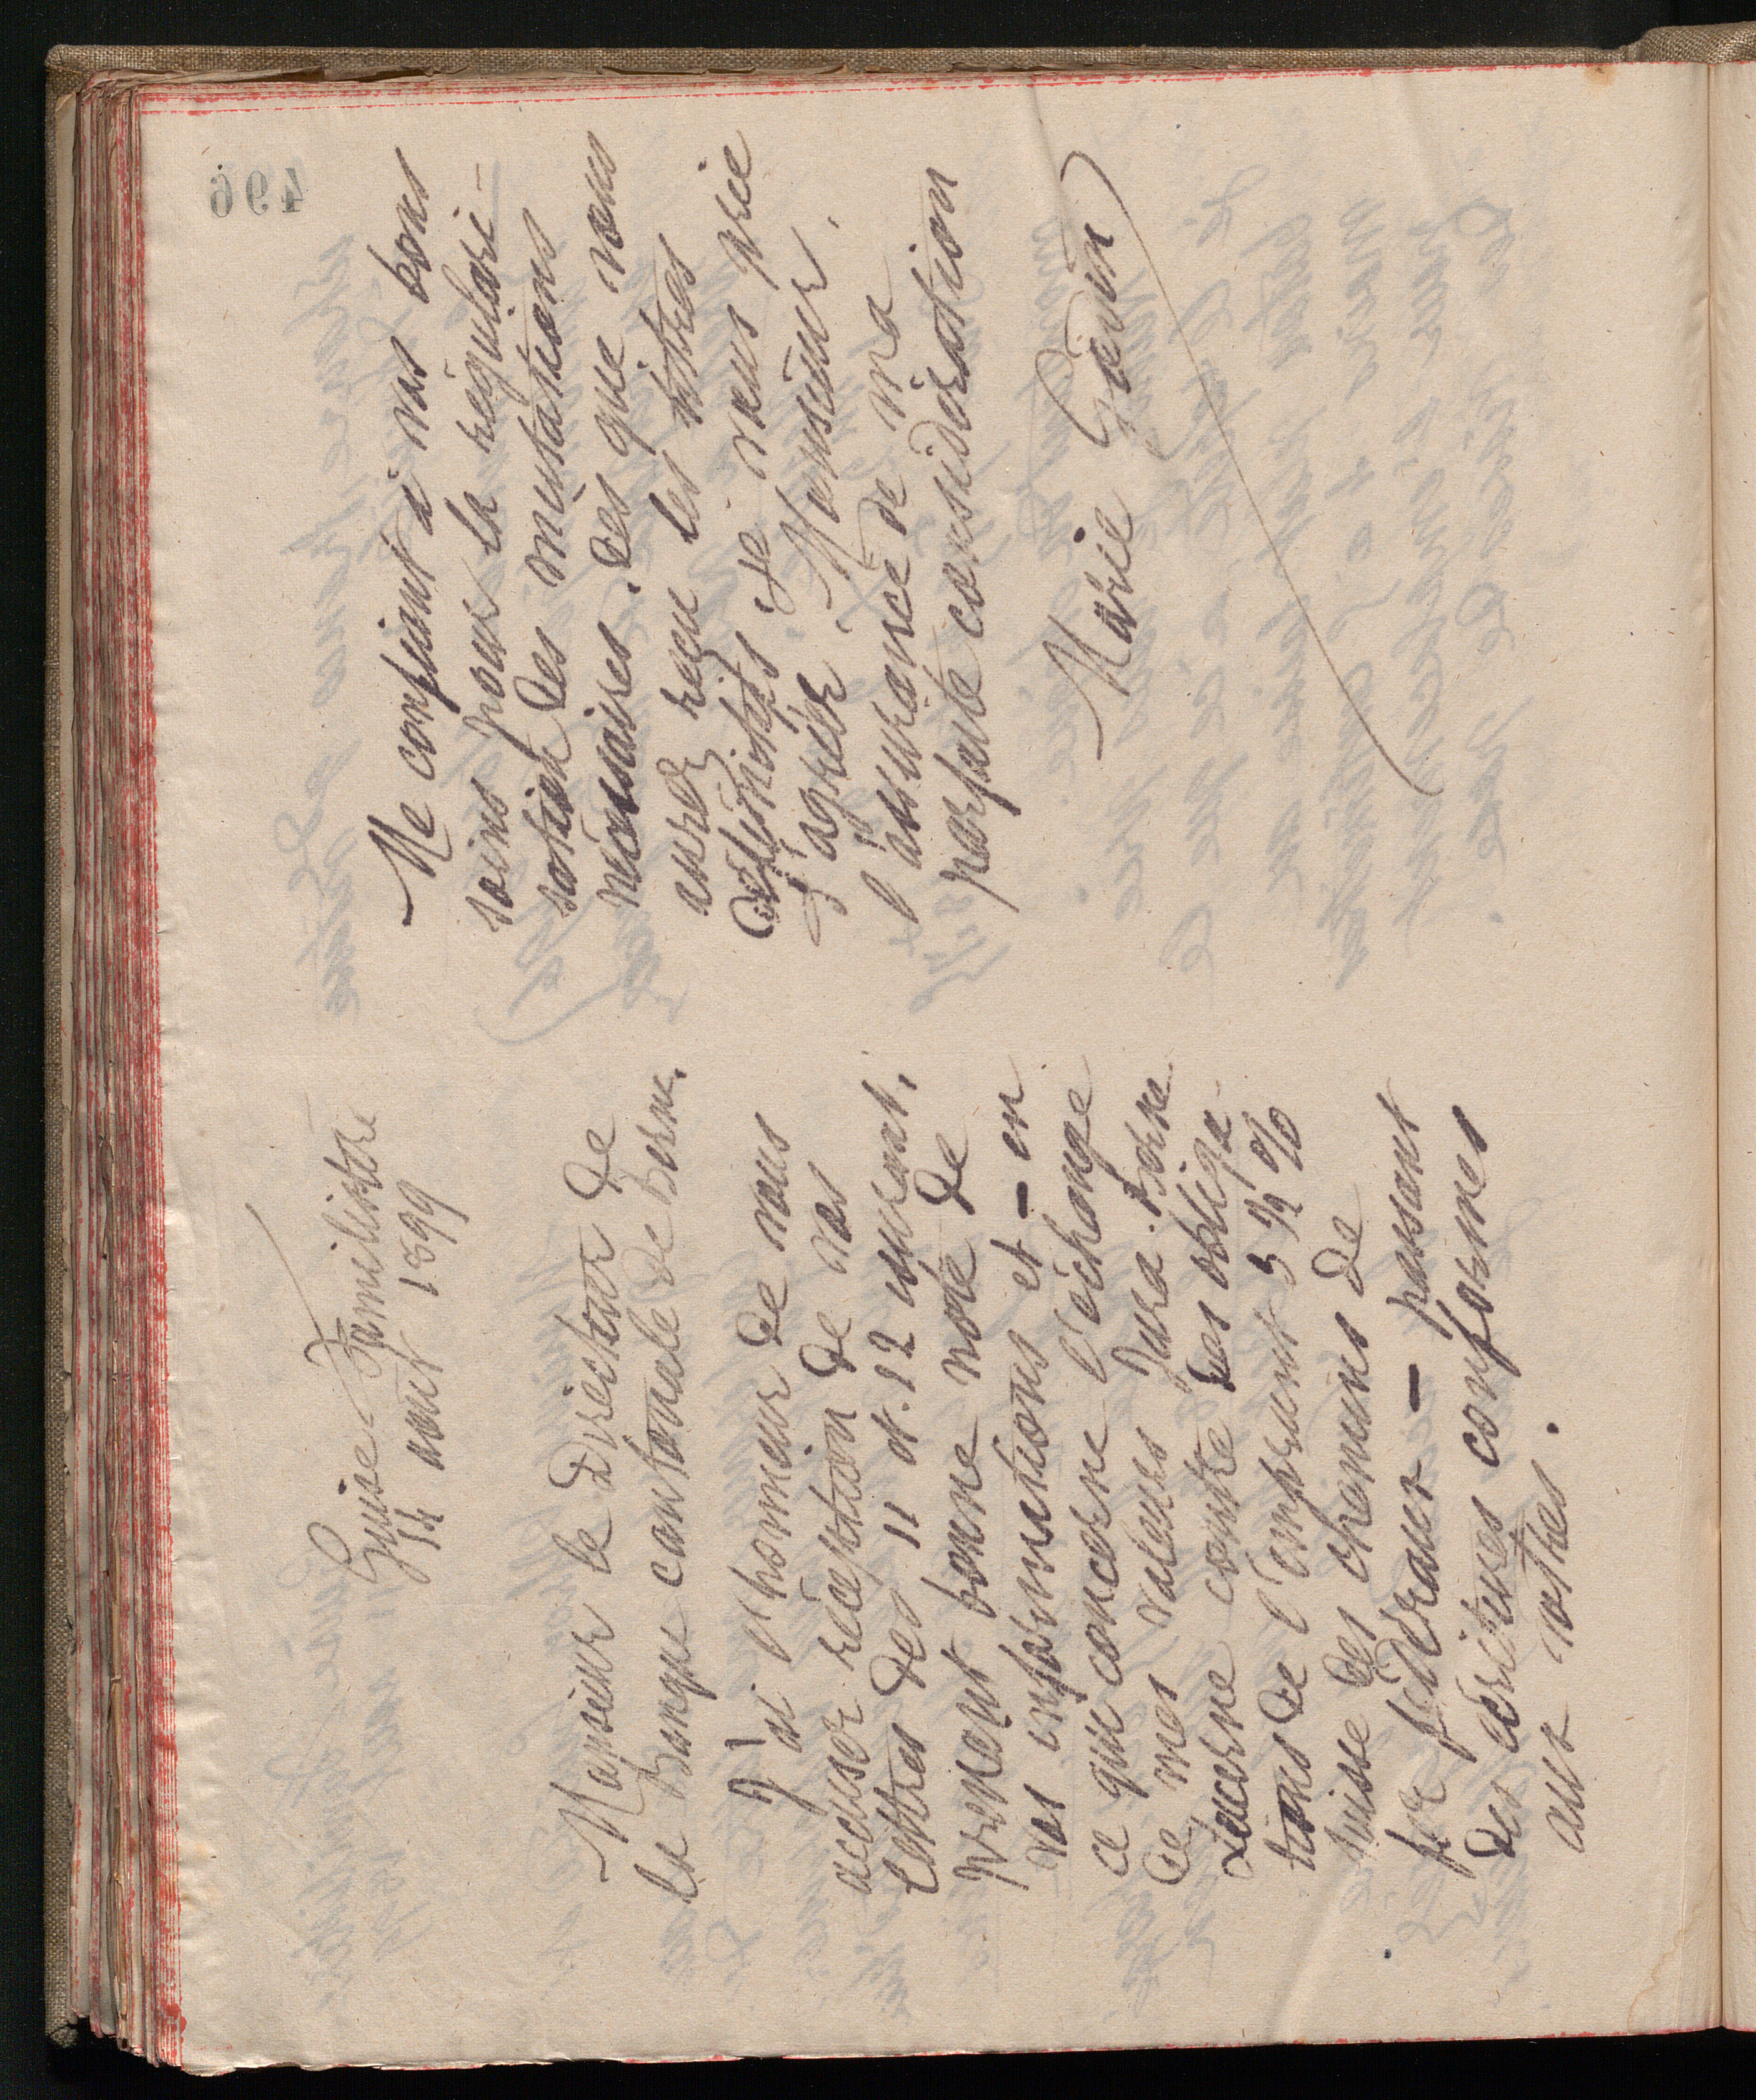 Guise Familistère
14 aout 1899
Monsieur le Directeur de
la Banque cantonale de Berne.
J'ai l'honneur de vous
accuser réception de vos
lettres des 11 et 12 courant,
prenant bonne note de
vos informations et - en
ce qui concerne l'échange
de mes valeurs Jura-Berne
Lucerne contre des obliga-
tions de l'emprunt 3 ½ %
suisse des chemins de
fer fédéraux - passant
des écritures conformes
aux votres.
Me confiant à vos bons
soins pour la régulari-
sation des mutations
nécessaires, dès que vous
aurez reçu les titres
définitifs, je vous prie
d'agréer, Monsieur,
l'assurance de ma
parfaite considération
Marie Godin
496